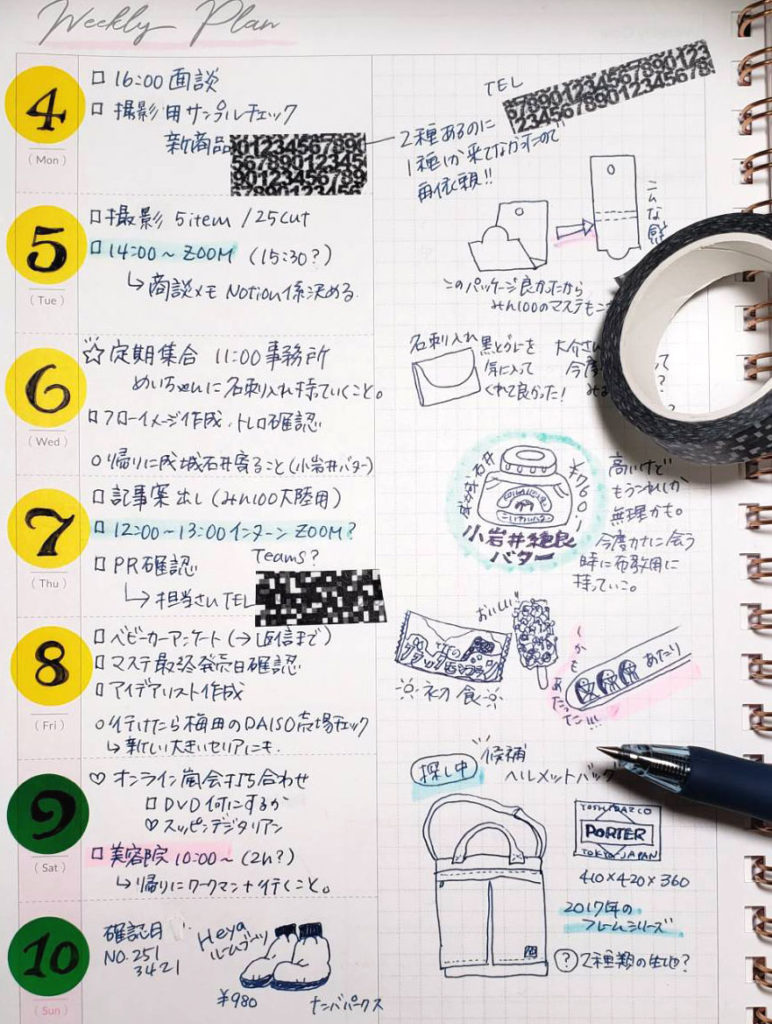 Weekly Plan
4
(Mon)
□ 16:00 面談
□ 撮影用サンプルチェック
新商品
TEL
2種あるのに
1種しか来てなかったので
再依頼!!
5
(Tue)
□ 撮影 5item / 25cut
□ 14:00~ ZOOM (15:30?)
↳ 商談メモ Notion係決める.
このパッケージ良かったから
みん100のマステも
6
(Wed)
☆定期集合 11:00 事務所
めいちゃんに名刺入れ持っていくこと。
□ フローイメージ作成・トレロ確認
○帰りに成城石井寄ること(小岩井バター)
名刺入れ
黒とグレーを
気に入って
くれて良かった!
大介さん
今度
7
(Thu)
□ 記事案出し (みん100大陸用)
□ 12:00~13:00 インターン ZOOM?
Teams?
□ PR確認
↳ 担当さんTEL
成城石井
¥760
小岩井純良
バター
高いけど
もうこれしか
無理かも。
今度かなに会う
時に布教用に
持っていこ。
8
(Fri)
□ ベビーカーアンケート (→返信まで)
□ マステ最終発売日確認
□ アイデアリスト作成
○行けたら梅田のDAISO売場チェック
↳ 新しい大きいセリアにも.
おいしい
初食
しかも
あたった!!!
あたり
9
(Sat)
♡ オンライン嵐会打ち合わせ
□ DVD何にするか
♡ スッピンデジタリアン
□ 美容院 10:00~ (2h?)
↳ 帰りにワークマン行くこと。
探し中
候補
ヘルメットバッグ
YOSHIDA & CO
PORTER
TOKYO JAPAN
410×420×360
2017年の
フレームシリーズ
? 2種類の生地?
10
(Sun)
確認月
NO. 251
3421
Heya
ルームブーツ
¥980
ナンバパークス